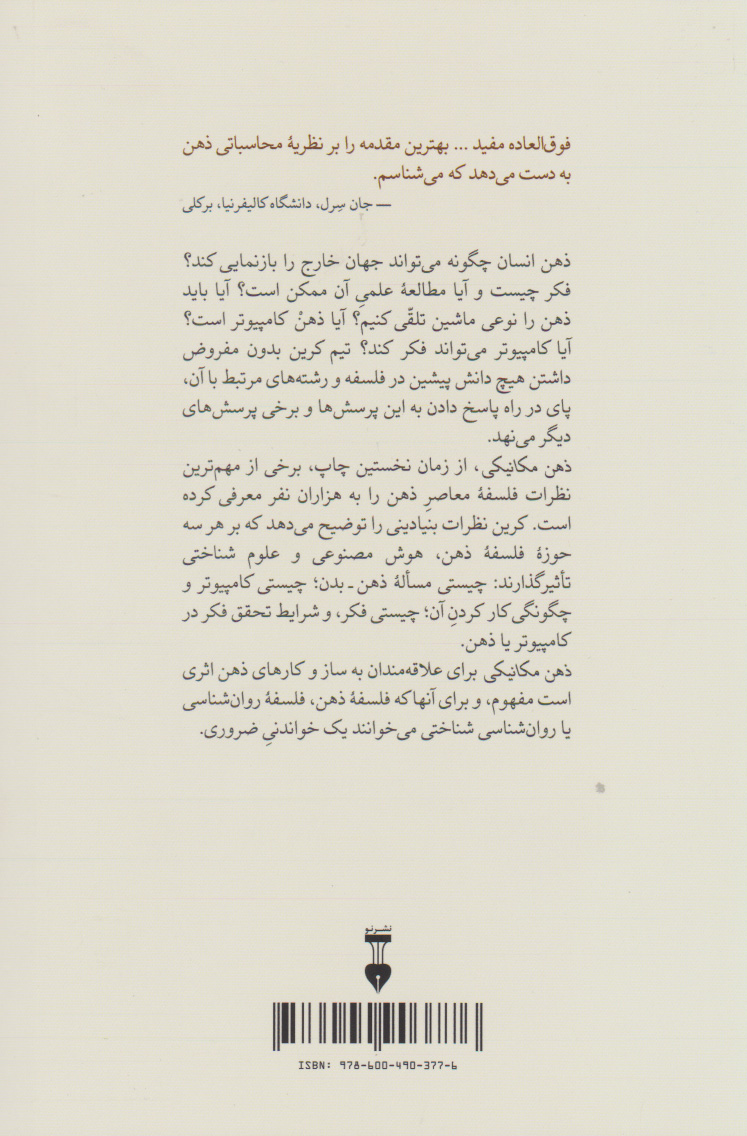 فوق‌العاده مفید ... بهترین مقدمه را بر نظریهٔ محاسباتی ذهن
به دست می‌دهد که می‌شناسم.
— جان سِرل، دانشگاه کالیفرنیا، برکلی
ذهن انسان چگونه می‌تواند جهان خارج را بازنمایی کند؟
فکر چیست و آیا مطالعهٔ علمیِ آن ممکن است؟ آیا باید
ذهن را نوعی ماشین تلقّی کنیم؟ آیا ذهنْ کامپیوتر است؟
آیا کامپیوتر می‌تواند فکر کند؟ تیم کرین بدون مفروض
داشتن هیچ دانش پیشین در فلسفه و رشته‌های مرتبط با آن،
پای در راه پاسخ دادن به این پرسش‌ها و برخی پرسش‌های
دیگر می‌نهد.
ذهن مکانیکی، از زمان نخستین چاپ، برخی از مهم‌ترین
نظرات فلسفهٔ معاصرِ ذهن را به هزاران نفر معرفی کرده
است. کرین نظرات بنیادینی را توضیح می‌دهد که بر هر سه
حوزهٔ فلسفهٔ ذهن، هوش مصنوعی و علوم شناختی
تأثیرگذارند: چیستی مسألهٔ ذهن ـ بدن؛ چیستی کامپیوتر و
چگونگی کار کردنِ آن؛ چیستی فکر، و شرایط تحقق فکر در
کامپیوتر یا ذهن.
ذهن مکانیکی برای علاقه‌مندان به ساز و کارهای ذهن اثری
است مفهوم، و برای آنها که فلسفهٔ ذهن، فلسفهٔ روان‌شناسی
یا روان‌شناسی شناختی می‌خوانند یک خواندنیِ ضروری.
نشرنو
ISBN: 978-600-490-377-6